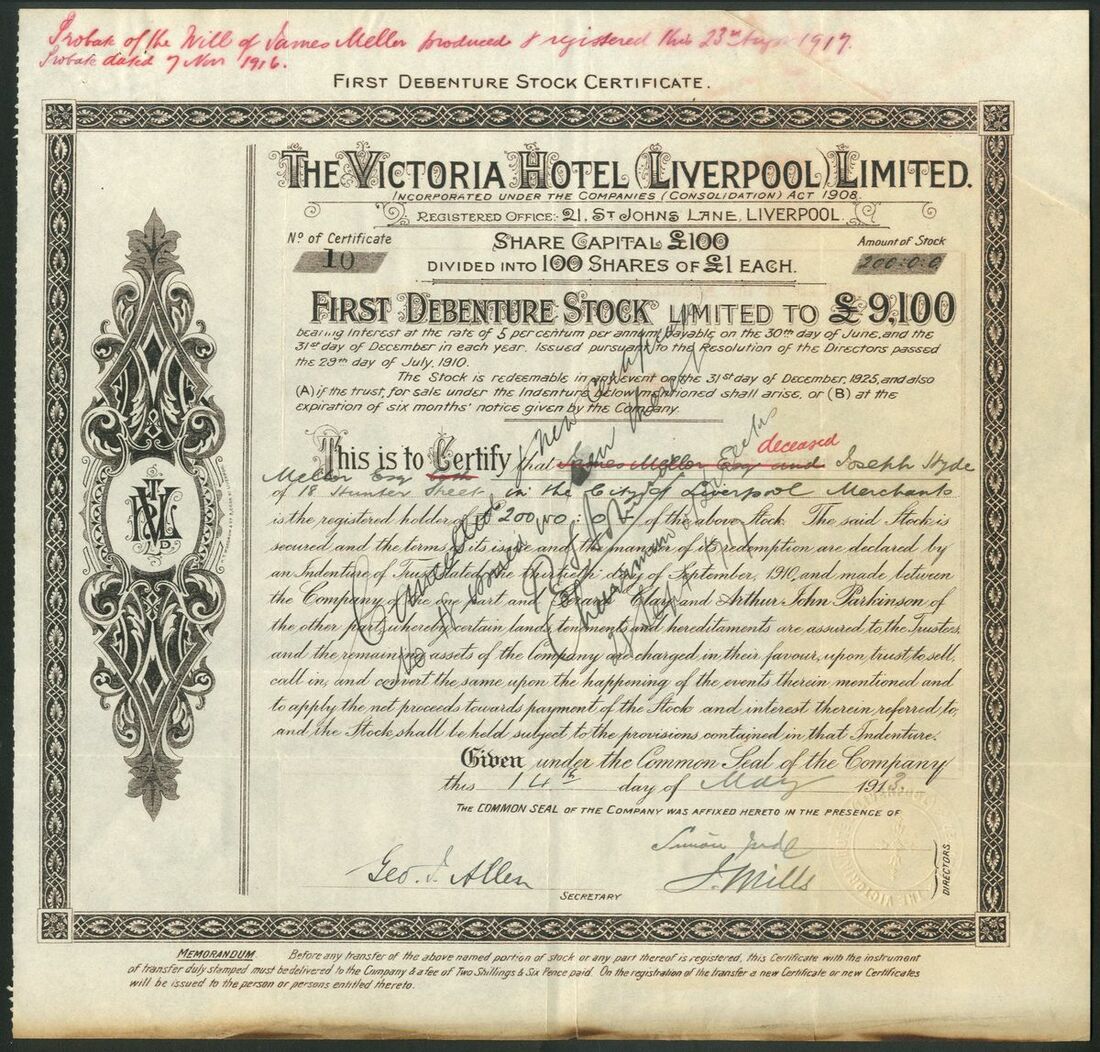 Probate of the Will of James Meller produced & registered this 23rd 1917.
Probate dated 7 Nov 1916.
FIRST DEBENTURE STOCK CERTIFICATE.
THE VICTORIA HOTEL (LIVERPOOL) LIMITED.
INCORPORATED UNDER THE COMPANIES (CONSOLIDATION) ACT 1908.
REGISTERED OFFICE: 21, ST JOHNS LANE, LIVERPOOL.
No of Certificate
10
SHARE CAPITAL £100
DIVIDED INTO 100 SHARES OF £1 EACH.
Amount of Stock
200:0:0
FIRST DEBENTURE STOCK LIMITED TO £9,100
bearing Interest at the rate of 5 per centum per annum payable on the 30th day of June, and the
31st day of December in each year. Issued pursuant to the Resolution of the Directors passed
the 29th day of July, 1910.
The Stock is redeemable in any event on the 31st day of December, 1925, and also
(A) if the trust, for sale under the Indenture below mentioned shall arise, or (B) at the
expiration of six months' notice given by the Company.
deceased
This is to Certify that James Meller Esq and Joseph Hyde
Meller Esq both
of 18 Hunter Street in the City of Liverpool Merchants
is the registered holder of £200 of the above Stock. The said Stock is
secured and the terms of its issue and the manner of its redemption are declared by
an Indenture of Trust dated the thirtieth day of September, 1910, and made between
the Company of the one part and Clay and Arthur John Parkinson of
the other part, whereby certain lands, tenements and hereditaments are assured to the Trustees,
and the remaining assets of the Company are charged in their favour, upon trust, to sell,
call in, and convert the same upon the happening of the events therein mentioned and
to apply the net proceeds towards payment of the Stock and interest therein referred to,
and the Stock shall be held subject to the provisions contained in that Indenture.
Cancelled new
No issued in thereof
Chairman
Sept 1917
Given under the Common Seal of the Company
this 14th day of May 1913.
THE COMMON SEAL OF THE COMPANY WAS AFFIXED HERETO IN THE PRESENCE OF
Simon Jude
Geo. J. Allen
J. Mills
SECRETARY
DIRECTORS
MEMORANDUM Before any transfer of the above named portion of stock or any part thereof is registered, this Certificate with the instrument
of transfer duly stamped must be delivered to the Company & a fee of Two Shillings & Six Pence paid. On the registration of the transfer a new Certificate or new Certificates
will be issued to the person or persons entitled thereto.